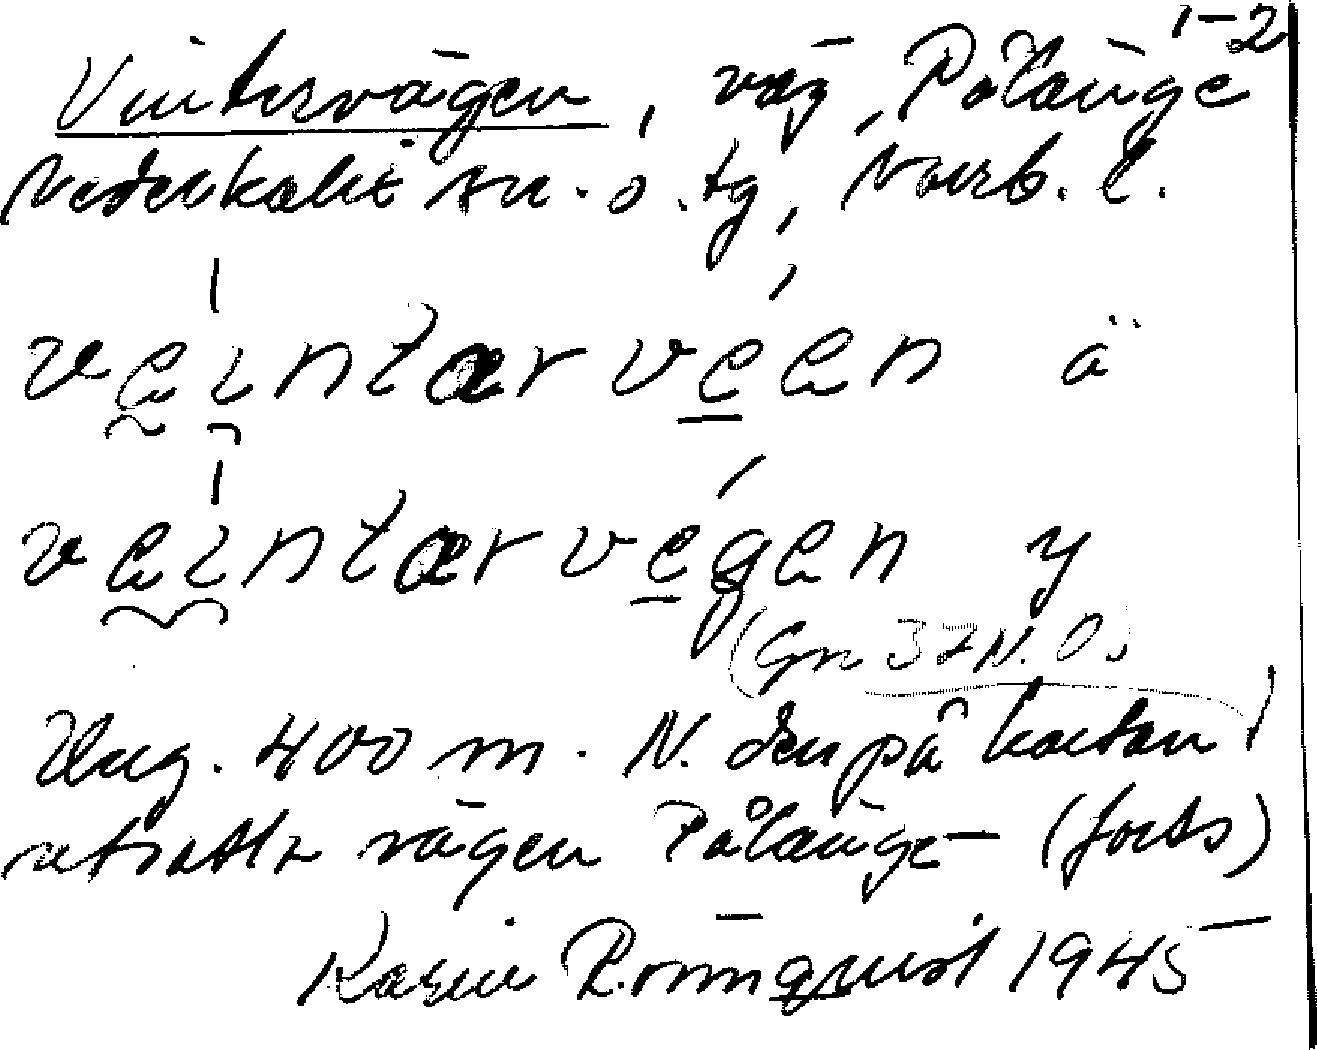 1-2
Vintervägen, väg, Pålänge
Nederkalix sn. o. tg, Norrb. l.
veintærvéen ä
veintærvegen y
(Gn 37 N.O.)
Ung. 400 m. N. den på kartan
utsatta vägen Pålänge- (forts)
Karin Rönnquist 1945